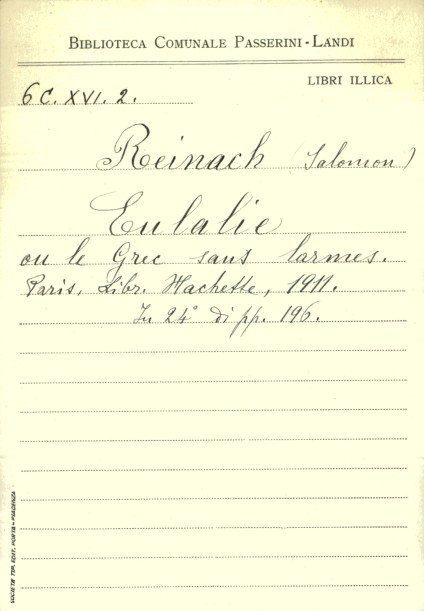 BIBLIOTECA COMUNALE PASSERINI-LANDI
LIBRI ILLICA
6C. XVI. 2.
Reinach (Salomon)
Eulalie
ou le Grec sans larmes.
Paris, Libr. Hachette, 1911.
In 24° di pp. 196.
SOCIETÀ TIP. EDIT. PORTA - PIACENZA